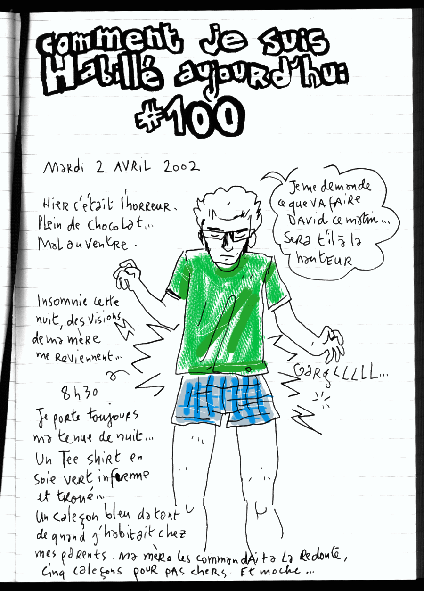 comment je suis
Habillé aujourd'hui
#100
Mardi 2 AVRIL 2002
Hier c'était l'horreur.
Plein de chocolat...
Mal au ventre.
Je me demande
ce que VA faire
DAVID ce matin...
Sera t'il à la
hauteur
Insomnie cette
nuit, des visions
de ma mère
me reviennent...
GargLLLLL...
8h30
Je porte toujours
ma tenue de nuit...
Un Tee shirt en
soie vert informe
et troué...
Un caleçon bleu datant
de quand j'habitait chez
mes parents. Ma mère les commandait a La Redoute,
cinq caleçons pour pas chers. Et moche...